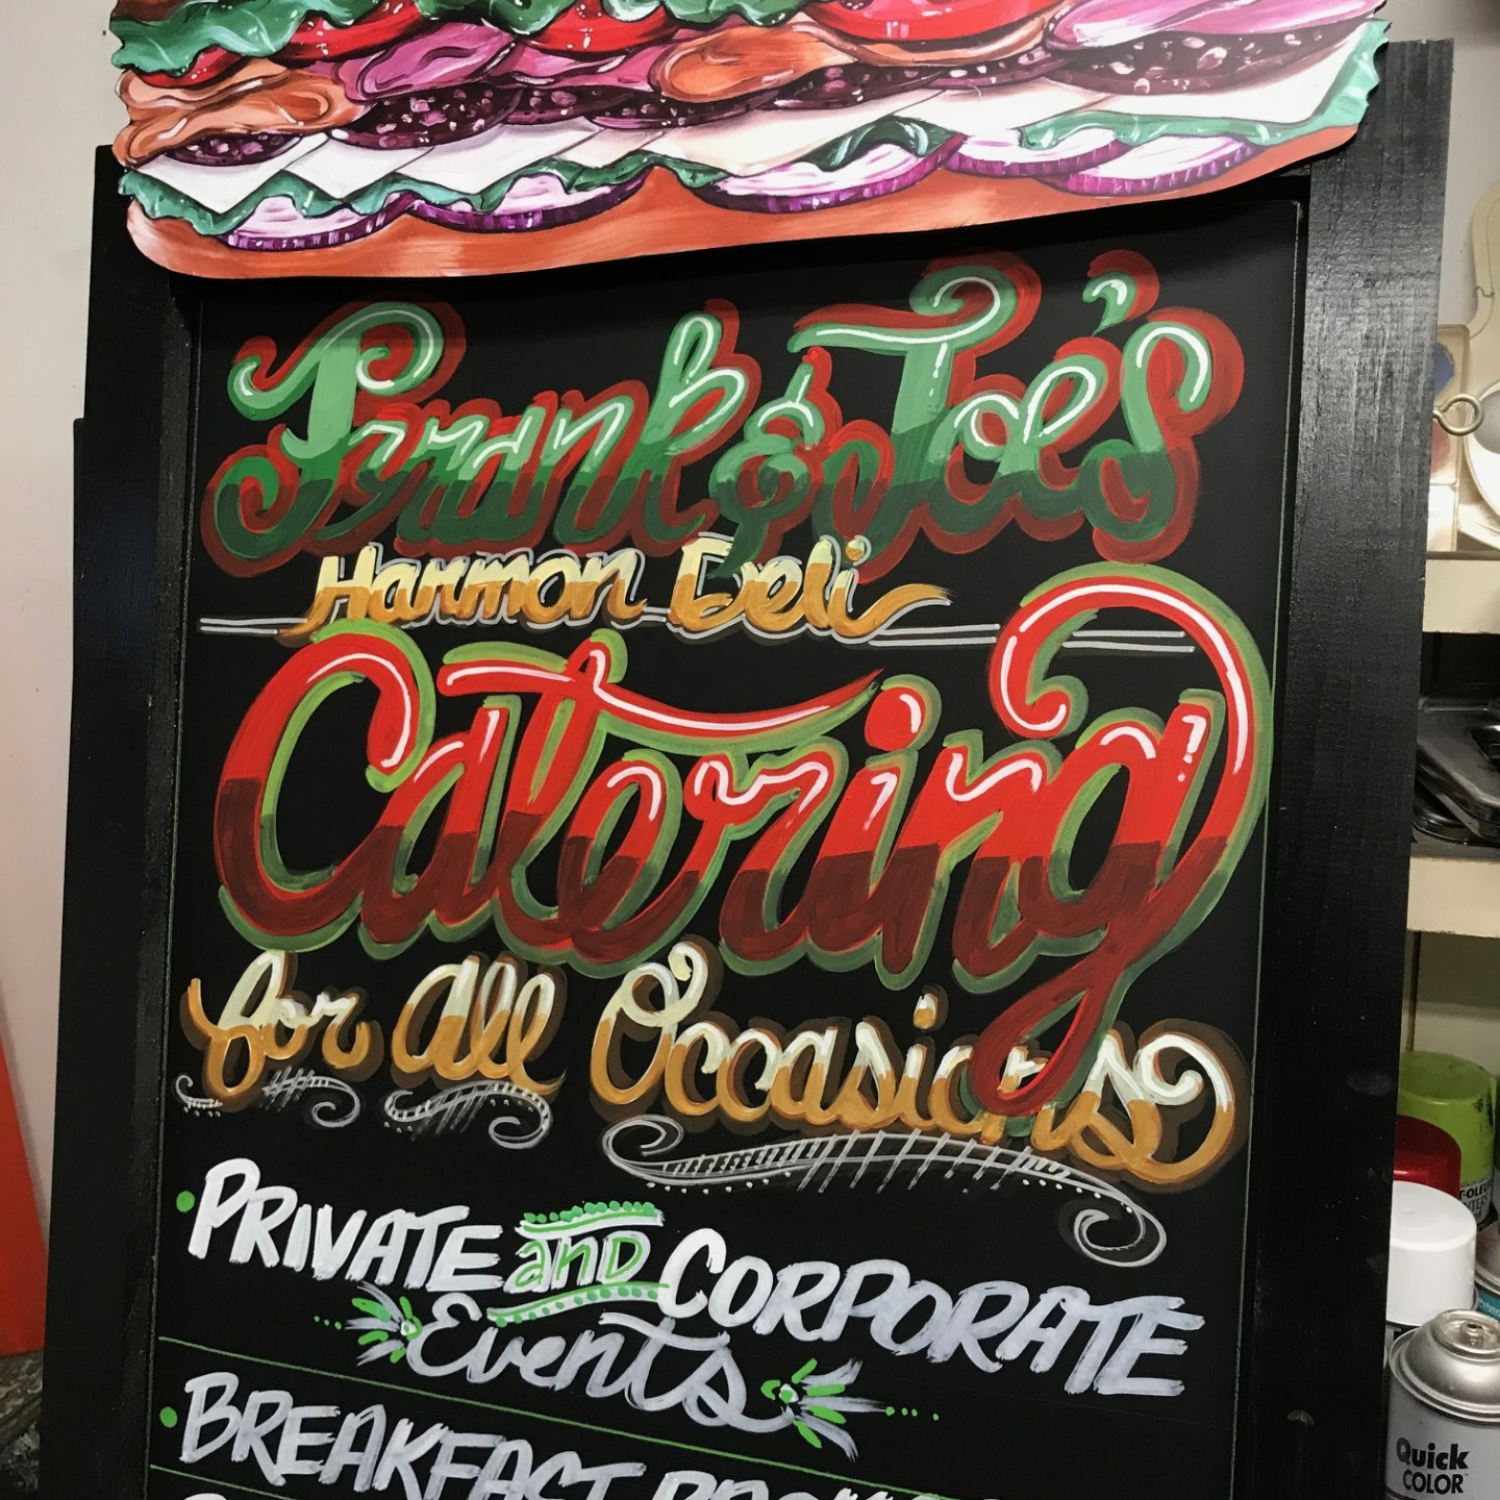 Frank & Joe's
Harmon Deli
Catering
for all Occasions
PRIVATE and CORPORATE
Events
BREAKFAST
Quick
COLOR